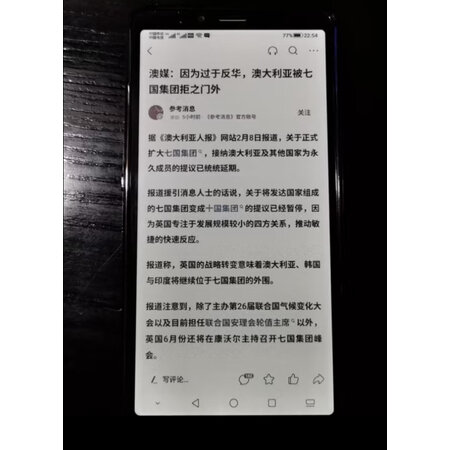 77% 22:54
澳媒：因为过于反华，澳大利亚被七
国集团拒之门外
参考消息
5小时前 《参考消息》官方账号
关注
据《澳大利亚人报》网站2月8日报道，关于正式
扩大七国集团，接纳澳大利亚及其他国家为永
久成员的提议已统统延期。
报道援引消息人士的话说，关于将发达国家组成
的七国集团变成十国集团的提议已经暂停，因
为英国专注于发展规模较小的四方关系，推动敏
捷的快速反应。
报道称，英国的战略转变意味着澳大利亚、韩国
与印度将继续位于七国集团的外围。
报道注意到，除了主办第26届联合国气候变化大
会以及目前担任联合国安理会轮值主席以外，
英国6月份还将在康沃尔主持召开七国集团峰
会。
写评论...